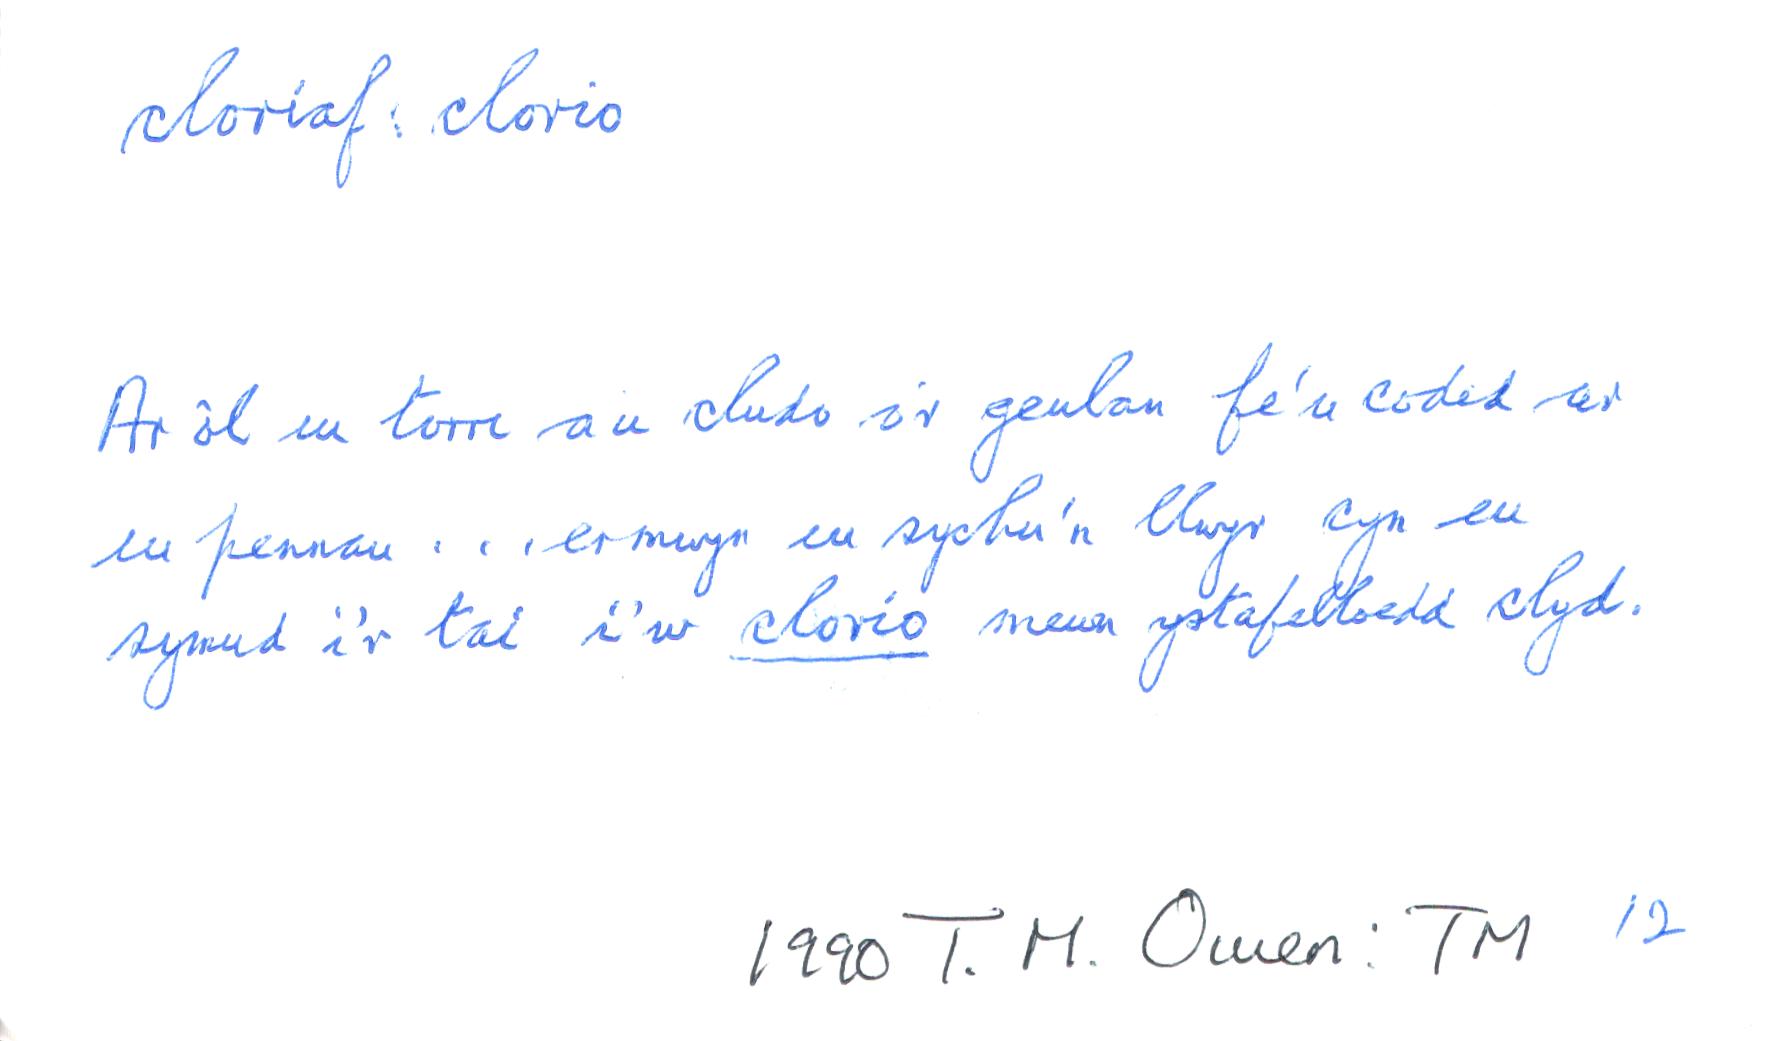 cloriaf: clorio
Ar ôl eu torri a'u cludo o'r geulan fe'u coded ar
eu pennau . . . er mwyn eu sychu'n llwyr cyn eu
symud i'r tai i'w clorio mewn ystafelloedd clyd.
1990 T. M. Owen: TM 12